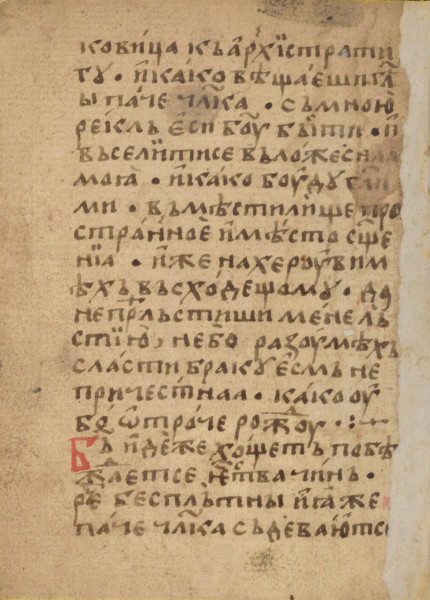 ковица къ а҆рхі́стратигꙋ
гꙋ · и҆ како вѣщае҆ши гл҃
ы паче чл҃ка · съмною
реклъ е҆си бо҃у быти · и҆
въселитисе въ ложесна
моꙗ · и҆ како боу҆дꙋ гл҃и
ми · въмѣстилище про
странное и҆ мѣсто сщ҃е
нїа · и҆же на херꙋвим
ѣхъ въсходешомꙋ · да
не прѣльстиши мене льстию,
стїю҆, небо разоумѣхъ
сласти бракꙋ е҆смъ не
причестнаа · како оу҆
бо ѿтроче рожоу ·:~
Бъ҃ и҆деже хощетъ побѣ
ждаетсе е҆ства чинъ ·
рⷱ҇е бесплътны и҆ ꙗже
паче чл҃ка съдевают​се